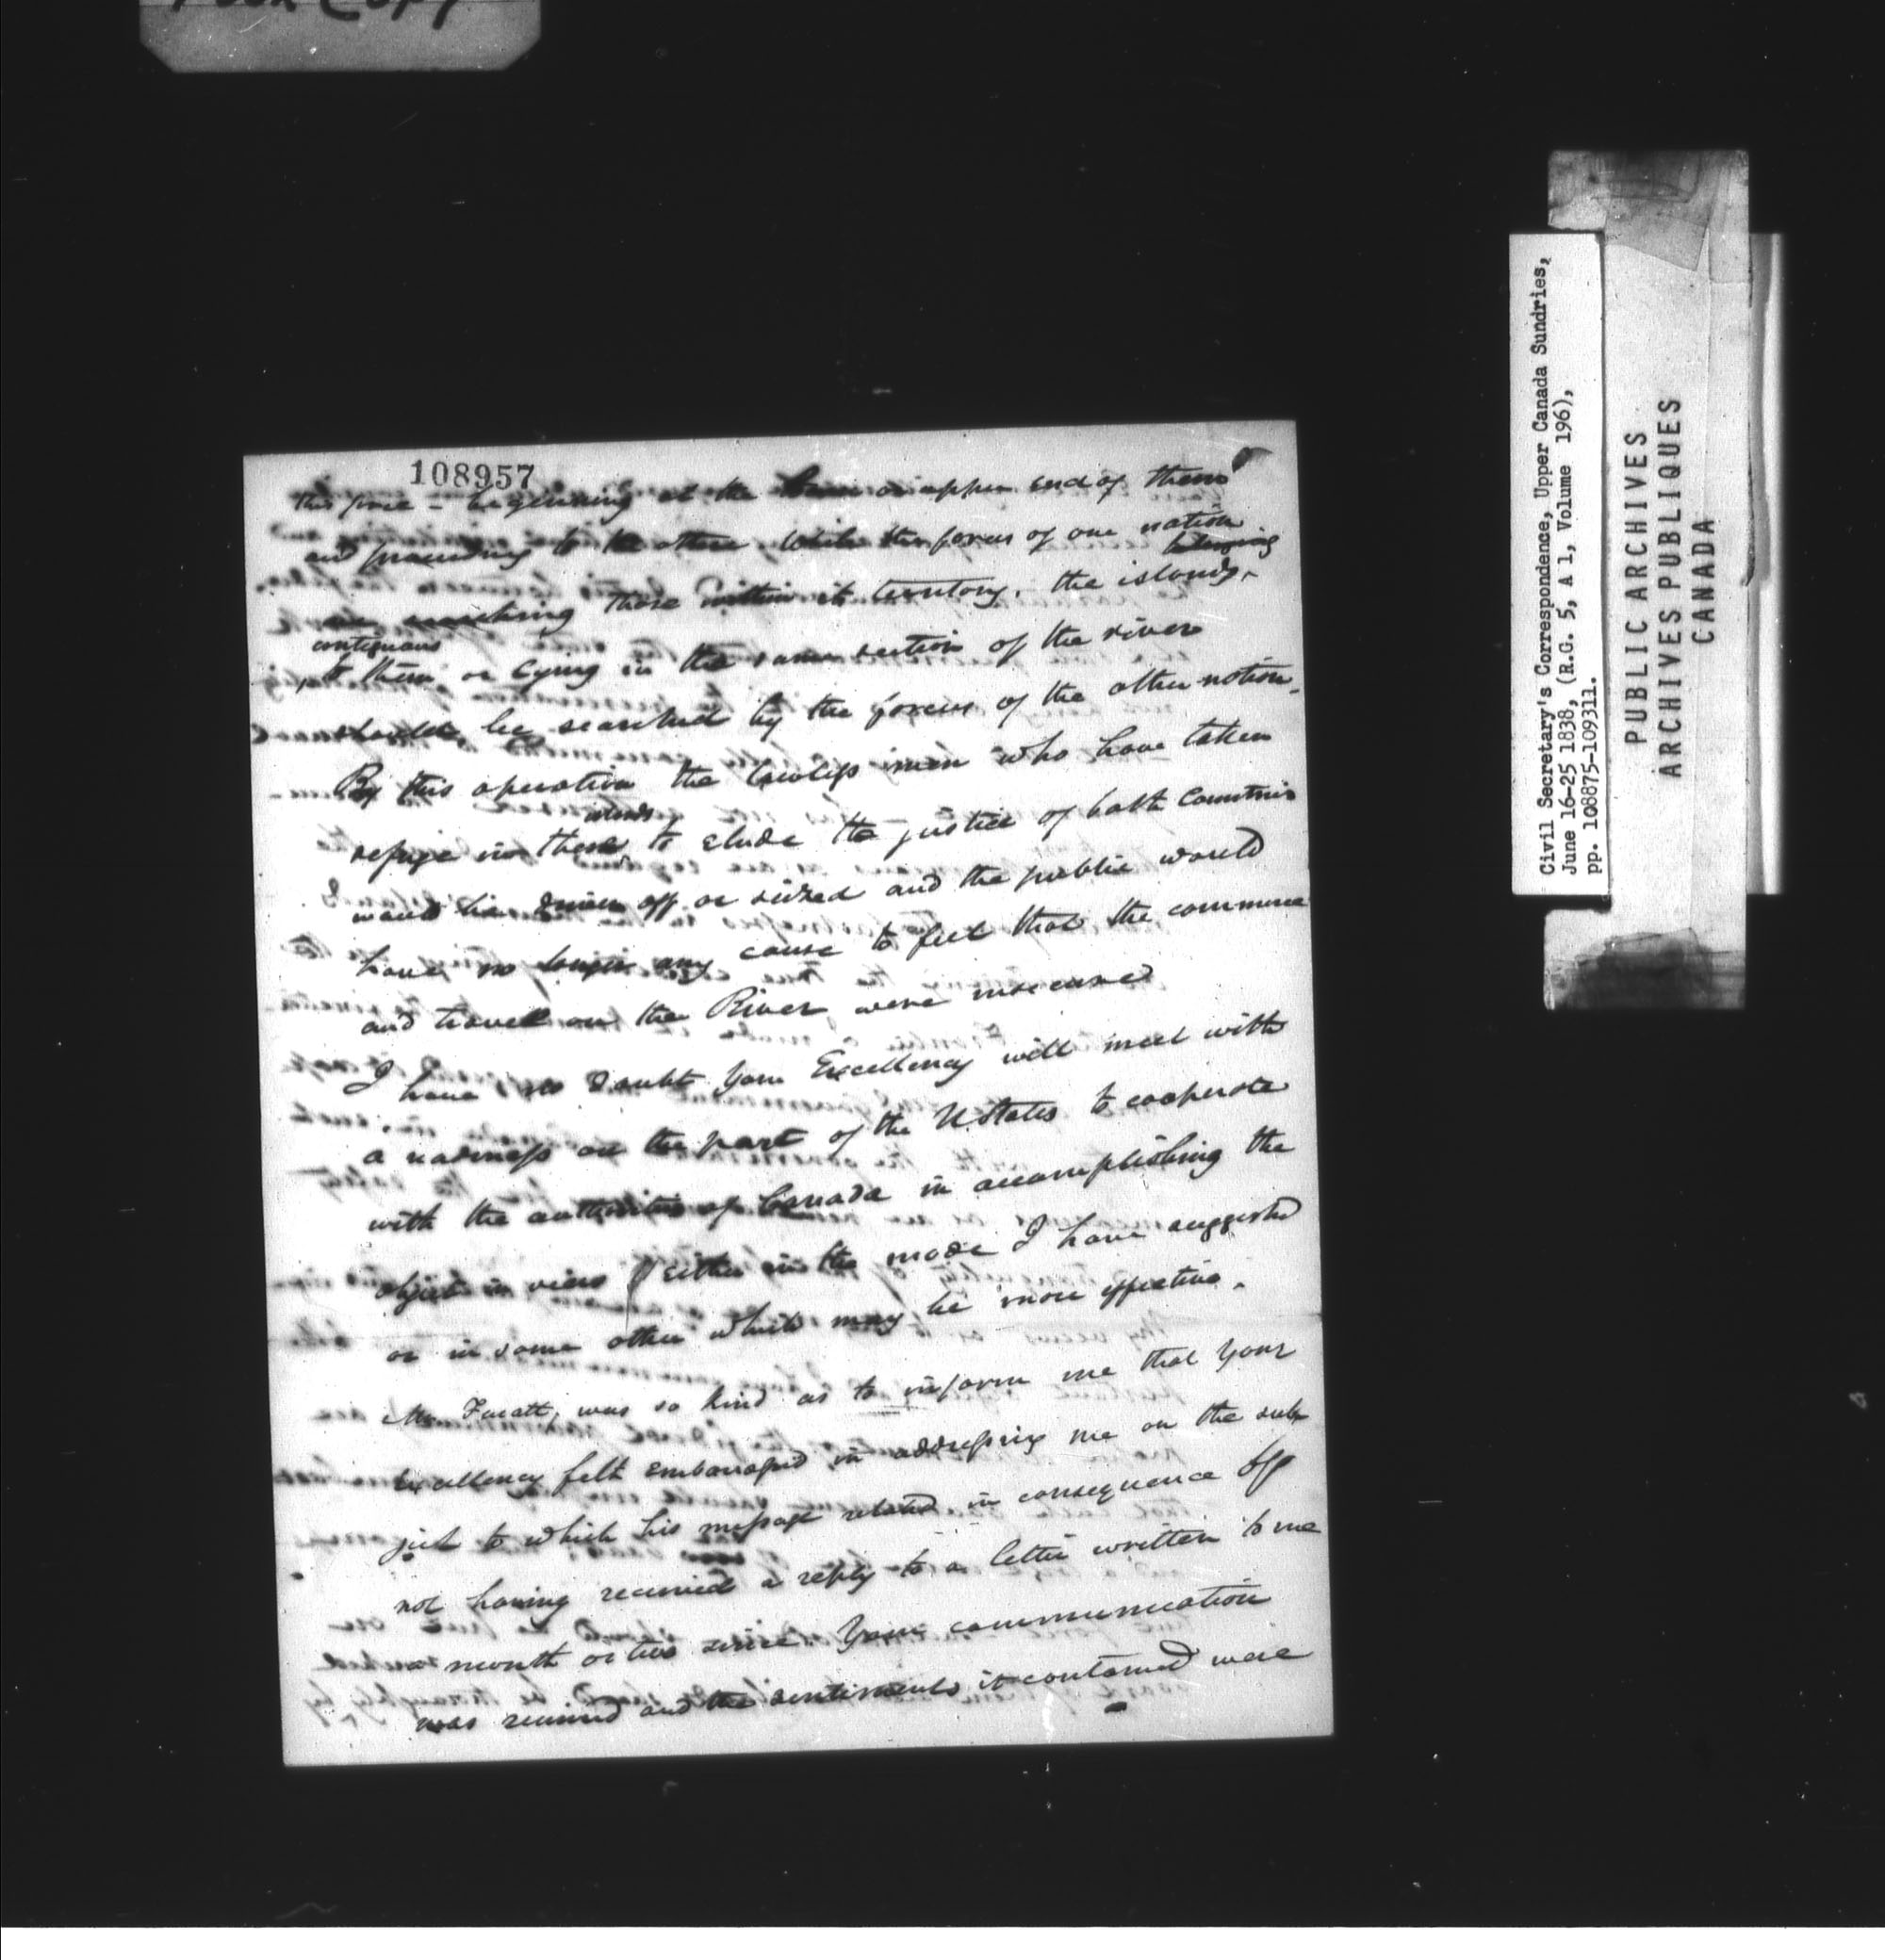 Poor Copy
108957
this force - beginning at the lower or upper end of them
and proceeding to the other while the forces of one nation
are searching those within its territory, the islands belonging
contiguous
to them or lying in the same section of the river
should be searched by the forces of the other nation.
By this operation the lawless men who have taken
islands
refuge in these to elude the justice of both Countries
would be driven off or seized and the public would
have no longer any cause to feel that the commerce
and travel on the River were insecure
I have no doubt Your Excellency will meet with
a readiness on the part of the U States to cooperate
with the authorities of Canada in accomplishing the
object in view either in the mode I have suggested
or in some other which may be more effective.
Mr was so kind as to inform me that Your
Excellency felt embarrassed in addressing me on the sub
ject to which his message related in consequence of
not having received a reply to a letter written to me
a month or two since. Your communication
was received and the sentiments it contained were
Civil Secretary's Correspondence, Upper Canada Sundries,
June 16-25 1838, (R.G. 5, A 1, Volume 196),
pp. 108875-109311.
PUBLIC ARCHIVES
ARCHIVES PUBLIQUES
CANADA